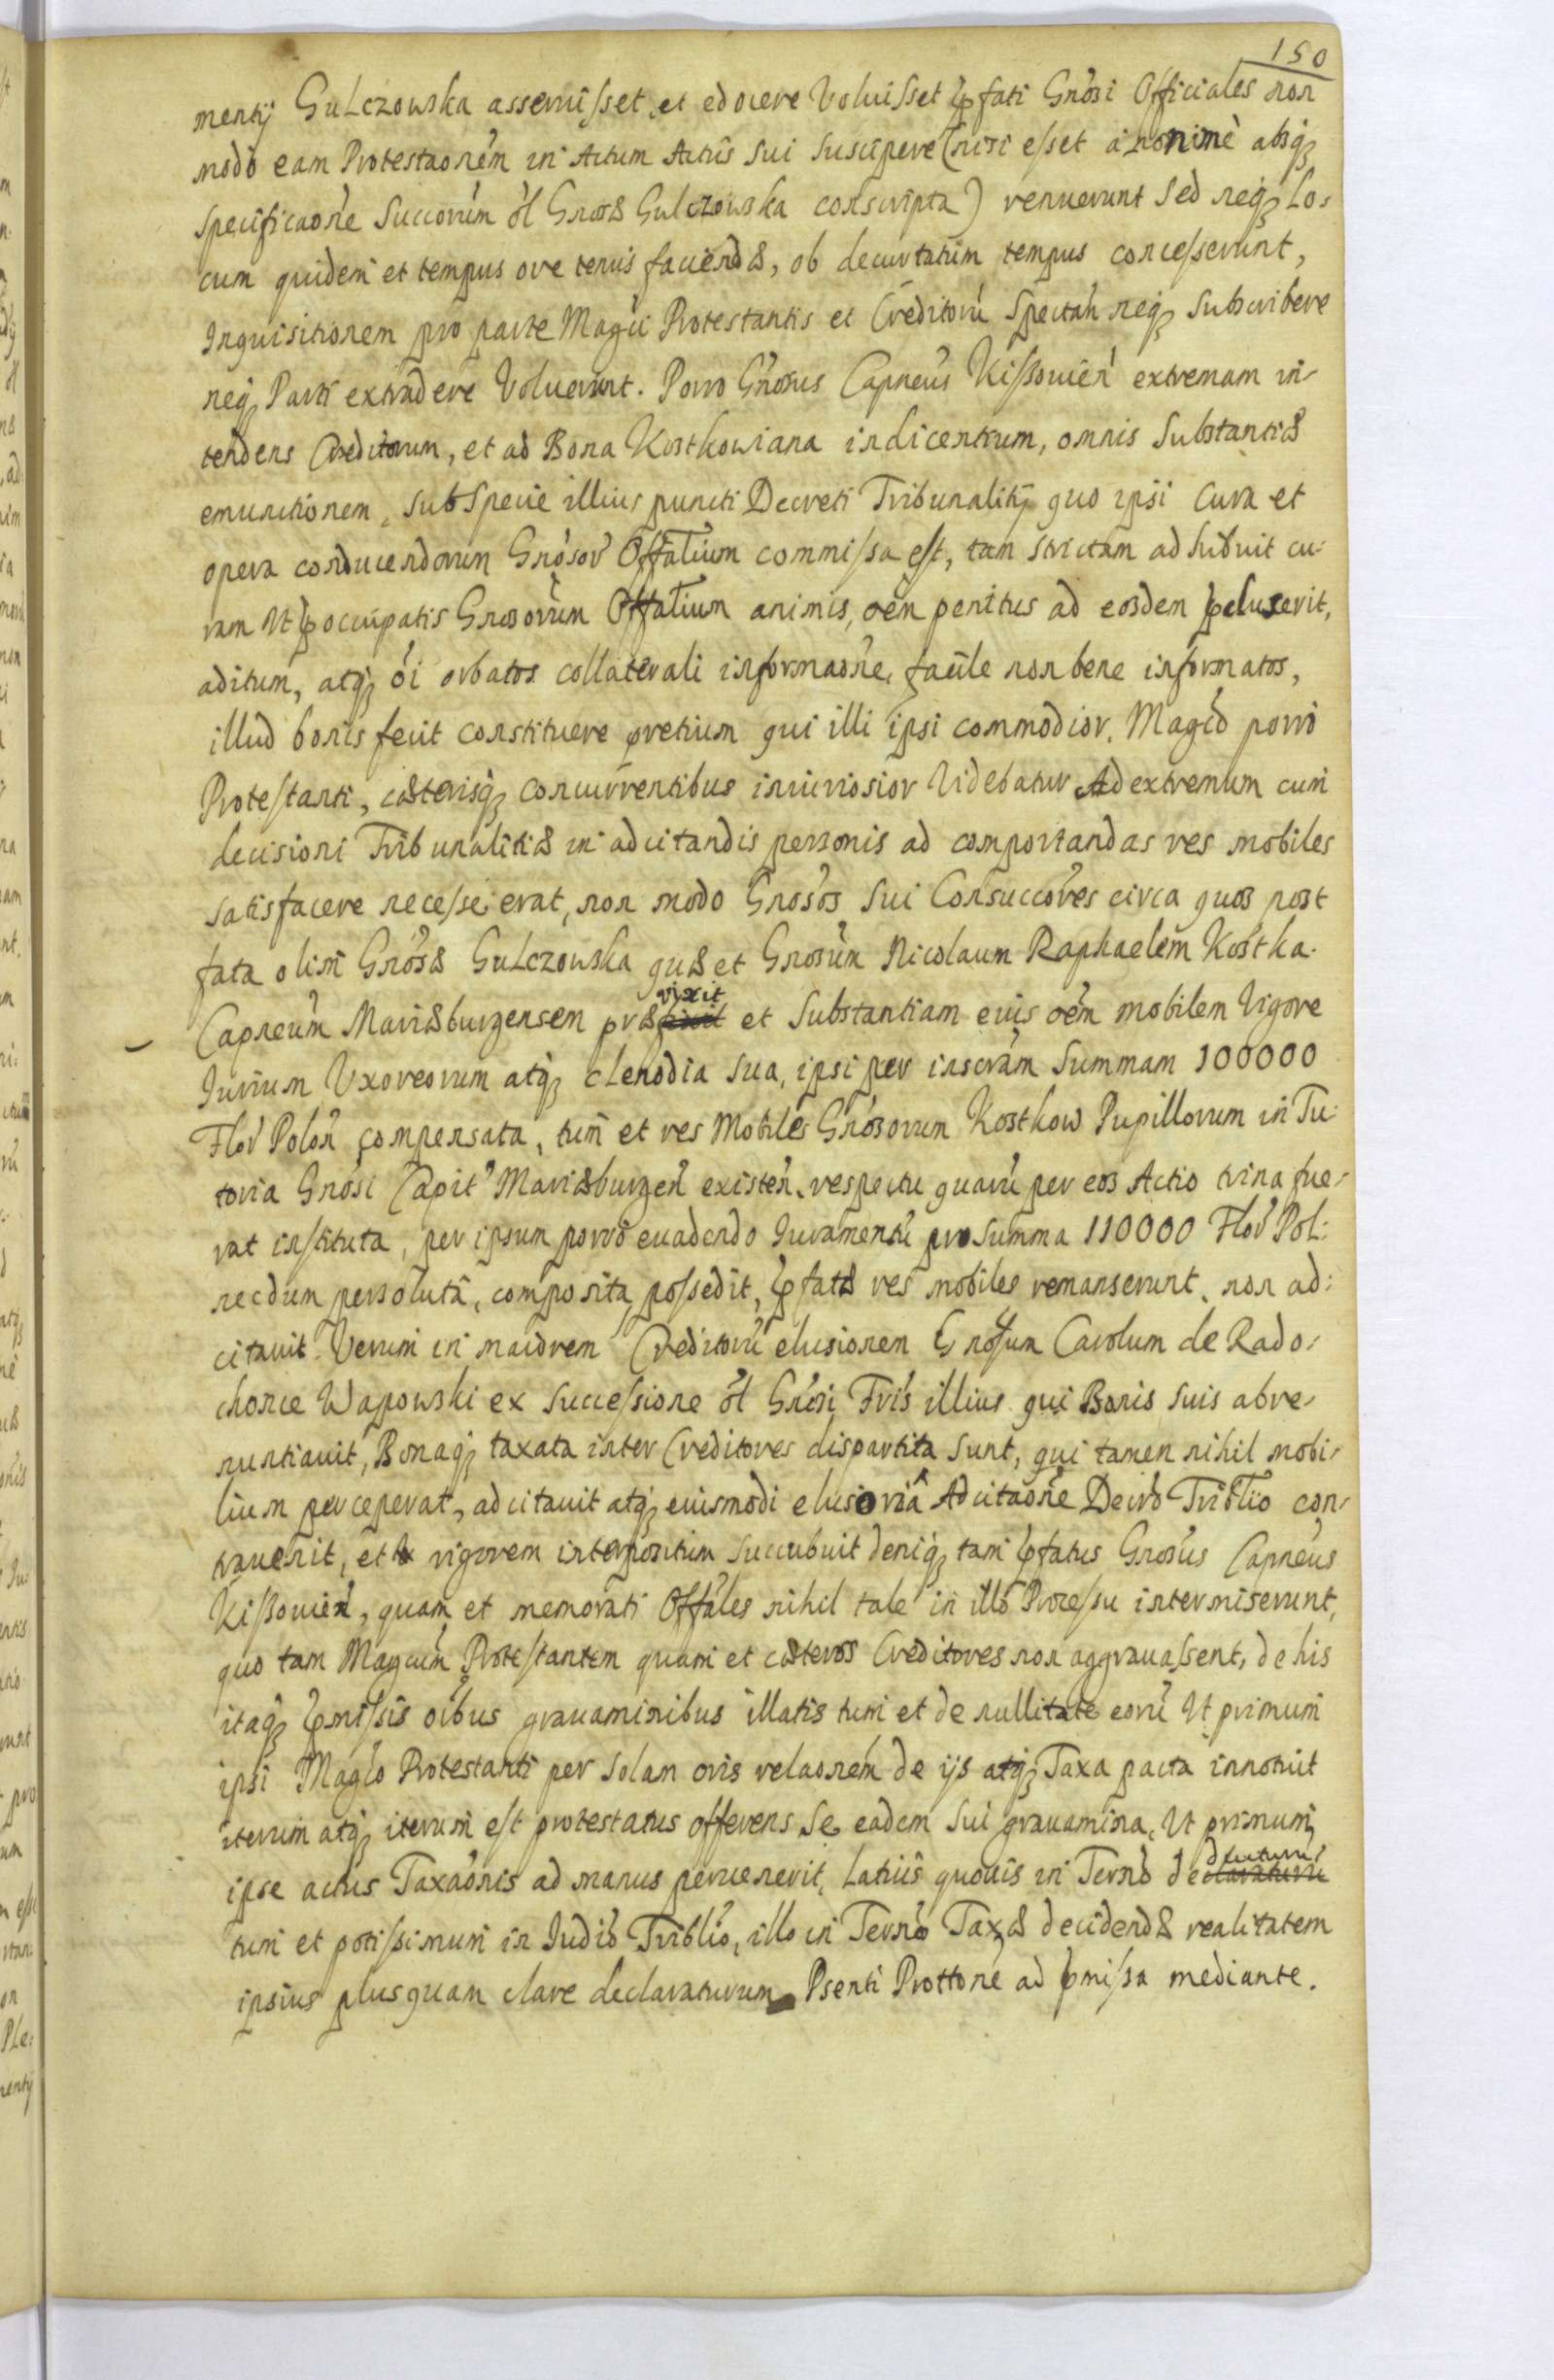 150
mentij Gulczowska asseruisset, et edocere Voluisset Pfati Gnosi Officiales non
modo eam Protestaonem in Actum Actus Sui Suscipere (nisi esset anonimè absq
specificaone Succorum ol Gnosæ Gulczowska conscripta) renuerunt Sed neq Lo-
cum quidem et tempus ore tenus faciendæ, ob decurtatum tempus concesserunt,
Inquisitionem pro parte Magci Protestantis et Creditorū Spectañ neq Subscribere
neq Parti extradere Voluerunt. Porro Gnosus Capneus Kissouień extremam in-
tendens Creditorum, et ad Bona Kostkowiana indicentium, omnis Substantiæ
emunctionem, sub Specie illius puncti Decreti Tribunalitij quo ipsi cura et
opera conducendorum Gnosor Offalium commissa est, tam strictam adhibuit cu-
ram Ut Poccupatis Gnosorum Offalium animis, oem penitus ad eosdem Pcluserit,
aditum, atq oi orbatos collaterali informaone, facile non bene informatos,
illud bonis fecit constituere pretium qui illi ipsi commodior, Magco porro
Protestanti, cæterisq concurrentibus iniuriosior Videbatur Ad extremum cum
decisioni Tribunalitiæ in adcitandis personis ad comportandas res mobiles
satisfacere necesse erat, non modo Gnosos Sui Consuccores circa quos post
fata olim Gnosæ Gulczowska quæ et Gnosum Nicolaum Raphaelem Kostka
Capneum Mariæburgensem præ vixit et Substantiam eius oem mobilem Vigore
Iurium Uxoreorum atq clenodia sua, ipsi per inscram Summam 100000
Flor Polon compensata, tum et res Mobiles Gnosorum Kostkow Pupillorum in Tu-
toria Gnosi Capit Mariæburgeń existeń, respectu quarū per eos Actio trina fue-
rat instituta, per ipsum porro euadendo Iuramentū pro Summa 110000 Flor Pol:
necdum persoluta, composita, possedit, Pfatæ res mobiles remanserunt, non ad-
citauit. Verum in maiorem Creditorū elusionem Gnosum Carolum de Rado-
chonce Wapowski ex Successione ol Gnosi Fris illius qui Bonis suis abre-
nuntiauit, Bonaq taxata inter Creditores dispartita sunt, qui tamen nihil mobi-
lium perceperat, adcitauit atq eiusmodi elusoriâ Adcitaone Decro Triblio con-
trauenit, et rigorem interpositum Succubuit deniq tam Pfatus Gnosus Capneus
Kissouień, quam et memorati Offales nihil tale in illo Processu intermiserunt,
quo tam Magcum Protestantem quam et cæteros Creditores non aggrauassent, de his
itaq Pmissis oibus grauaminibus illatis tum et de nullitate eorū Ut primum
ipsi Magco Protestanti per Solam oris relaonem de ijs atq Taxa pacta innotuit
iterum atq iterum est protestatus offerens Se eadem Sui grauamina, Ut primum
ipse actus Taxaonis ad manus peruenerit, Latius quouis in Terno deducturū
tum et potissimum in Judio Triblio, illo in Terno Taxæ decidendæ realitatem
ipsius plusquam clare declaraturum Psenti Prottone ad Pmissa mediante.